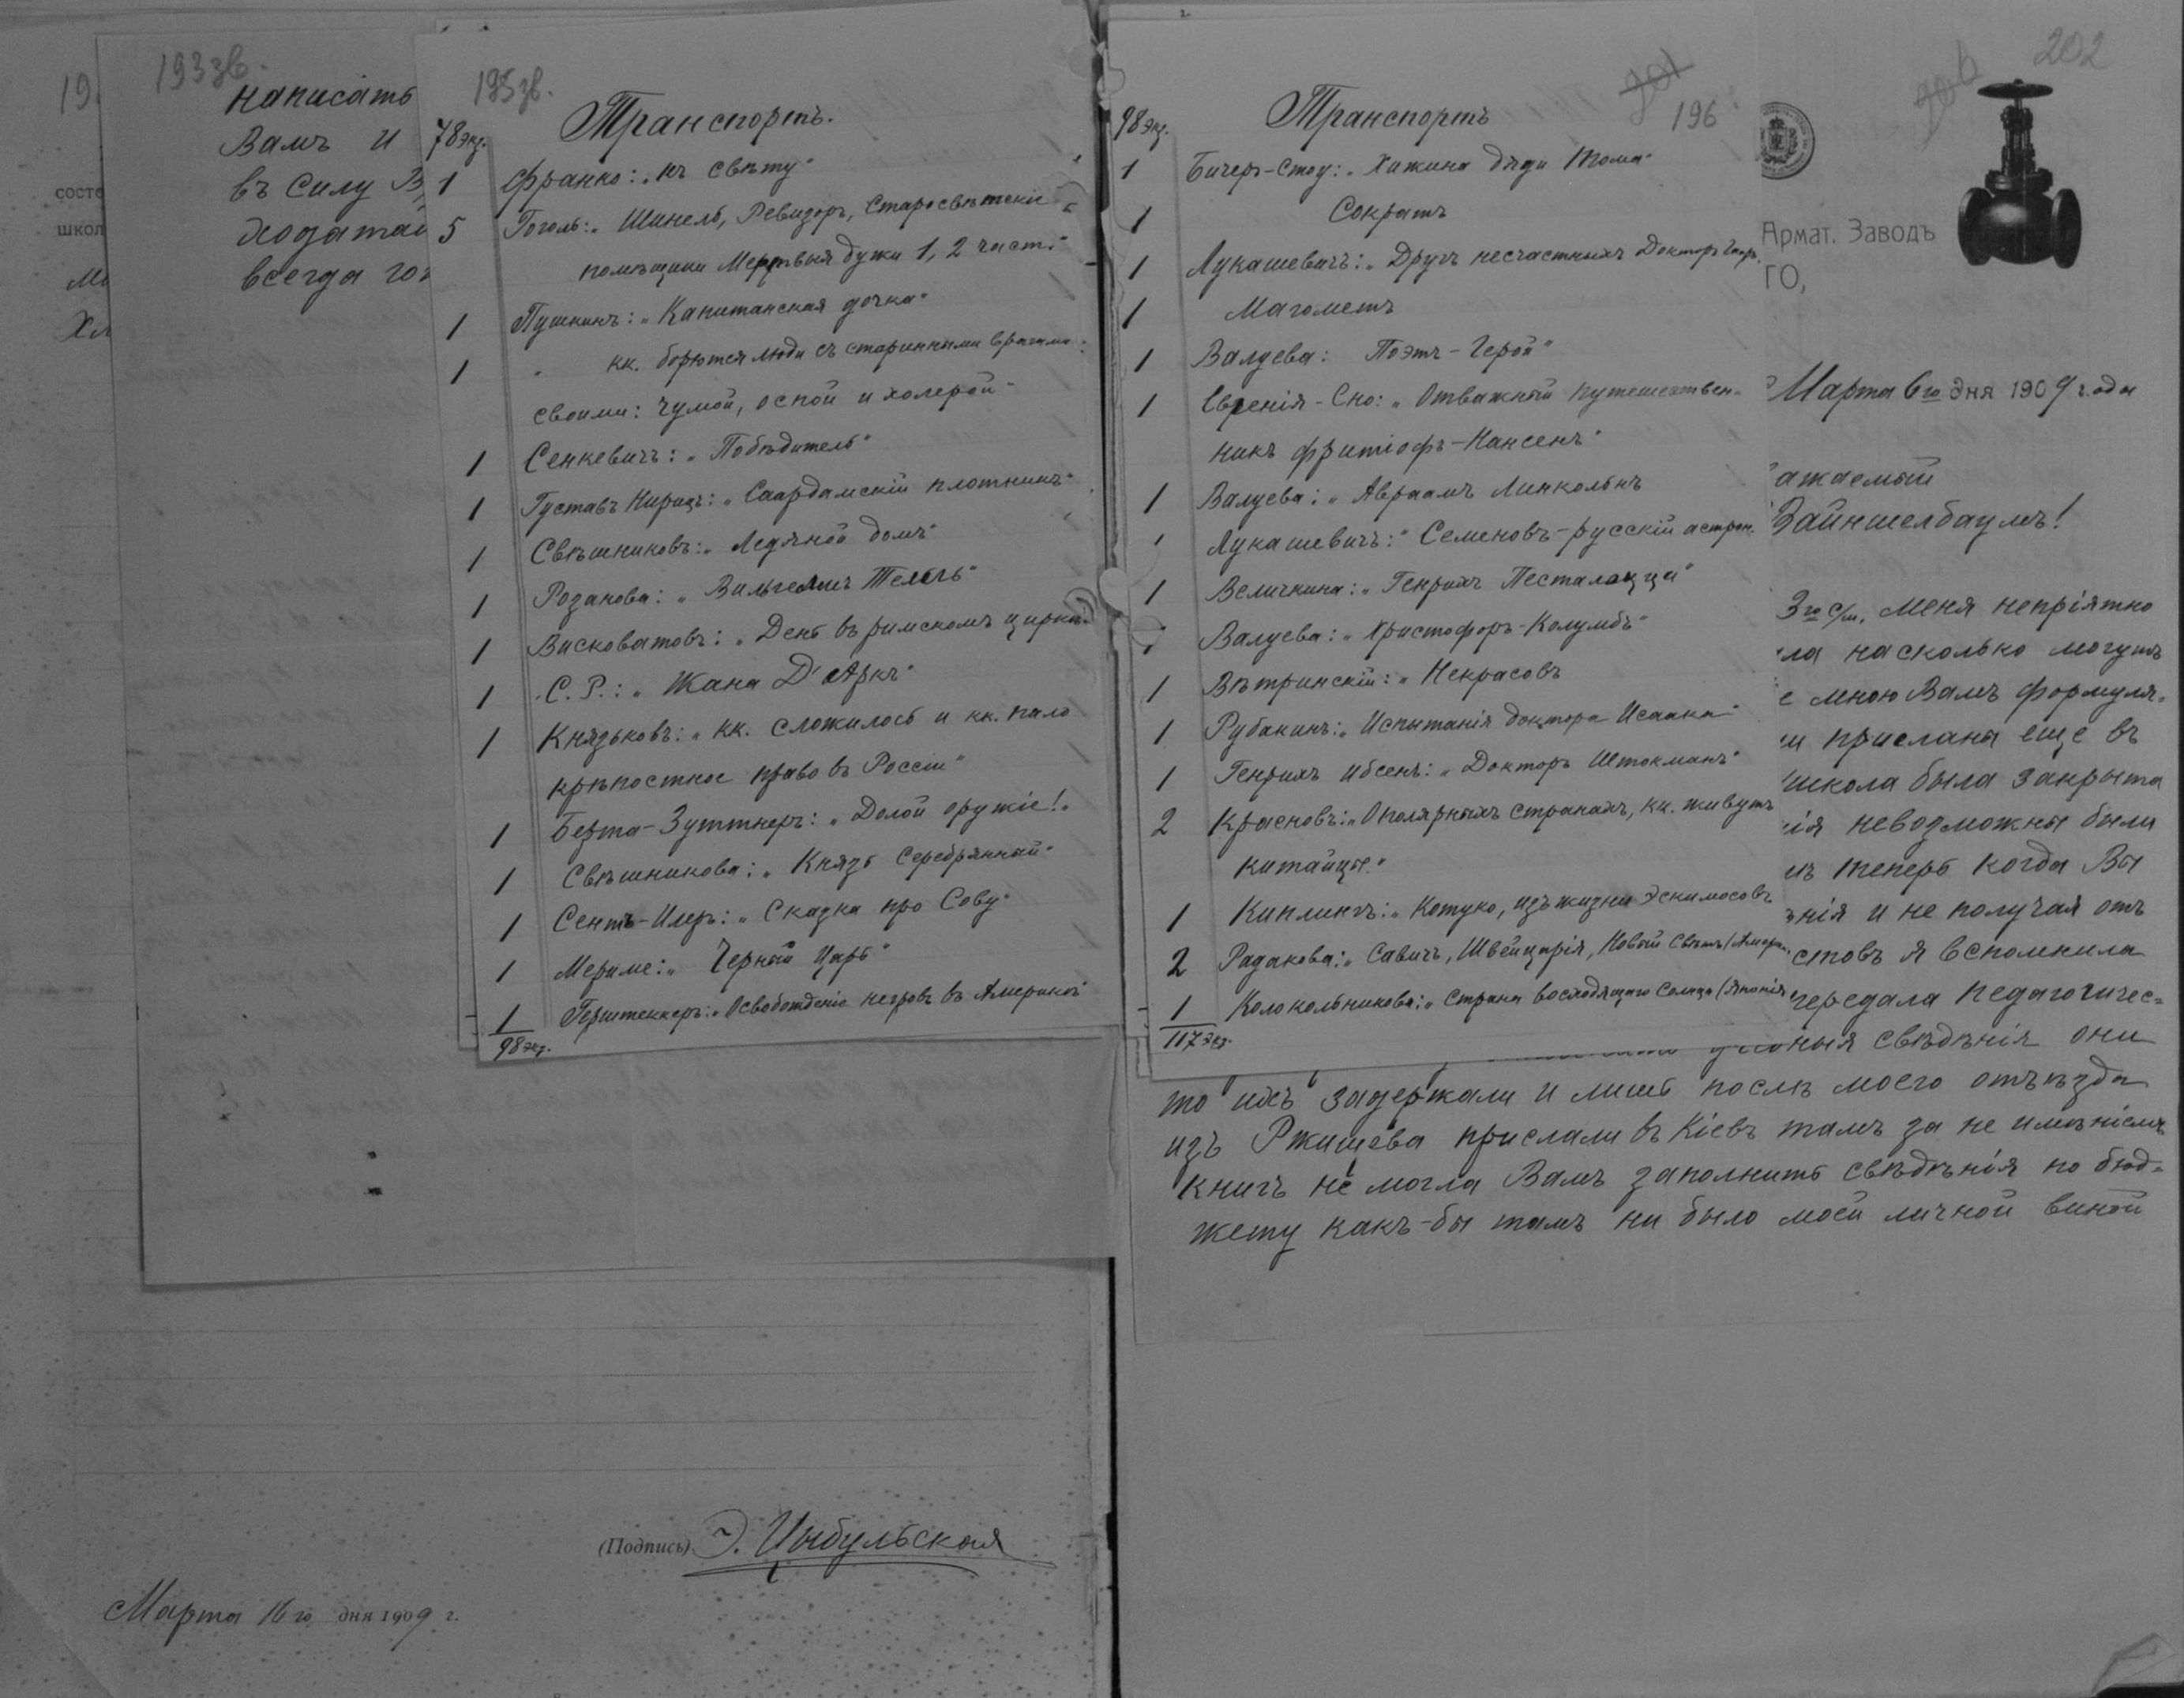 193зв.
написать
Вамъ и
въ силу В
ходатай
всегда го
19
состо
школ
Хл
195зв.
Транспортъ.
78 экз.
1 Франко: „Къ свѣту"
5 Гоголь: „Шинель, Ревизоръ, Старосвѣтскіе
помѣщики Мертвыя души 1, 2 части"
1 Пушкинъ: „Капитанская дочка"
1 " кк. борются люди съ старинными врагами
своими: чумой, оспой и холерой"
1 Сенкевичъ: „Побѣдитель"
1 Густавъ Нирицъ: „Саардамскій плотникъ"
1 Свѣшниковъ: „Ледяной домъ"
1 Розанова: „Вильгельмъ Телль"
1 Висковатовъ: „День въ римскомъ циркѣ"
1 С. Р.: „Жана Д'Аркъ"
1 Князьковъ: „кк. сложилось и кк. пало
крѣпостное право въ Россіи"
1 Берта-Зуттнеръ: „Долой оружіе!"
1 Свѣшникова: „Князь Серебрянный"
1 Сентъ-Илеръ: „Сказка про Сову"
1 Мериме: „Черный Царь"
1 Герштеккеръ: „Освобожденіе негровъ въ Америкѣ"
98 экз.
(Подпись) Э. Цыбульская
Марта 16го дня 1909 г.
196
Транспортъ
98 экз.
1 Бичеръ-Стоу: „Хижина дяди Тома"
1 Сократъ
1 Лукашевичъ: „Другъ несчастныхъ Докторъ
1 Магометъ
1 Валуева: Поэтъ-Герой"
1 Евгенія-Сно: „Отважный путешествен-
никъ Фритіофъ-Нансенъ"
1 Валуева: „Авраамъ Линкольнъ
1 Лукашевичъ: "Семеновъ-русскій астрон.
1 Величкина: „Генрихъ Песталоцци"
1 Валуева: „Христофоръ-Колумбъ"
1 Вѣтринскій: „Некрасовъ
1 Рубакинъ: „Испытанія доктора Исаака"
1 Генрихъ Ибсенъ: „Докторъ Штокманъ"
2 Красновъ: „О полярныхъ странахъ, кк. живутъ
китайцы"
1 Киплингъ: „Котуко, изъ жизни Эскимосовъ
2 Радакова: „Савичъ, Швейцарія, Новый Свѣтъ (Амер
1 Колокольникова: „Страна восходящаго Солнца (Японія
117 экз.
202
Армат. Заводъ
ГО,
Марта 6го дня 1909 года
ажаемый
Вайншелбаумъ!
3го с/м. меня непріятно
ла насколько могутъ
е мною Вамъ формуля-
и присланы еще въ
школа была закрыта
ія невозможны были
мъ теперь когда Вы
нія и не получая отъ
стовъ я вспомнила
передала педагогичес=
ныя свѣдѣнія они
то ихъ задержали и лишь послѣ моего отъѣзда
изъ Ржищева прислали въ Кіевъ тамъ за не имѣніемъ
книгъ не могла Вамъ заполнить свѣдѣнія по бюд-
жету какъ-бы тамъ ни было моей личной виной